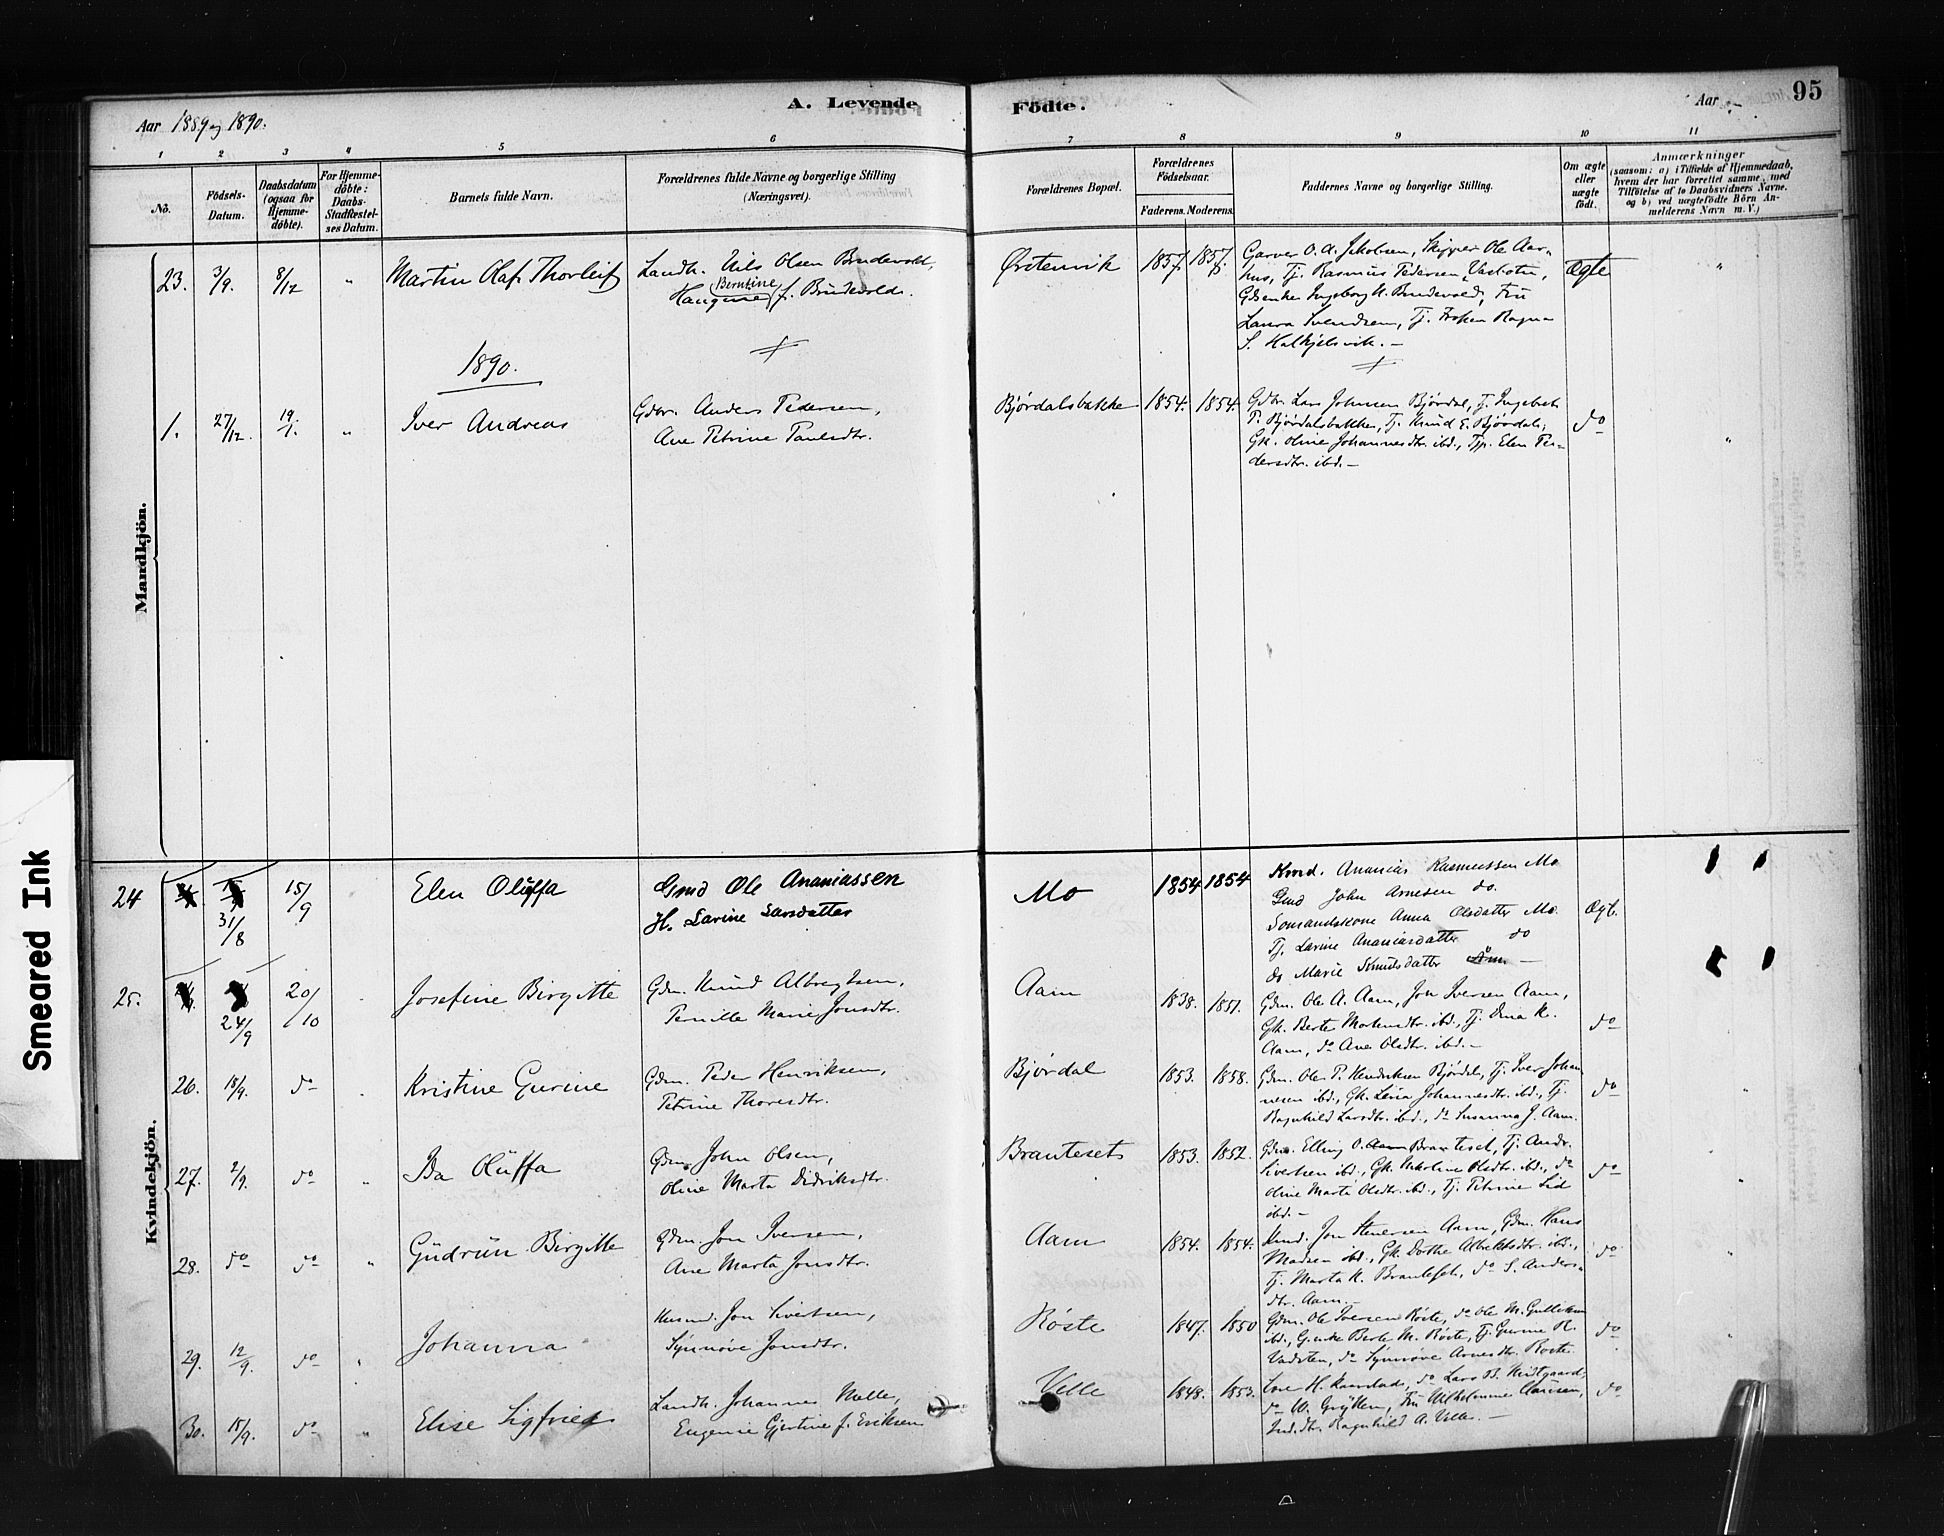 A. Levende
Födte.
Aar 1889 og 1890.
Aar
95
1 2 3 4 5 6 7 8 9 10 11
No.
Födsels-
Datum.
Daabsdatum
(ogsaa for
Hjemme-
döbte).
For Hjemme-
döbte:
Daabs-
Stadfæstel-
ses Datum.
Barnets fulde Navn.
Forældrenes fulde Navne og borgerlige Stilling
(Næringsvei).
Forældrenes Bopæl.
Forældrenes
Födselsaar.
Faderens. Moderens.
Faddernes Navne og borgerlige Stilling.
Om ægte
eller
uægte
födt.
Anmærkninger
(saasom: a) i Tilfælde af Hjemmedaab,
hvem der har forrettet samme, med
Tilföielse af to Daabsvidners Navne.
og b) ved uægtefödte Börn An-
melderens Navn m. V.)
Mandkjön.
23. 3/9. 8/12 " Martin Olaf Thorleif
Landh. Nils Olsen Brudevold,
Berntine
Haugine f. Brudevold.
Ørstenvik 1857. 1857.
Garver O. A. Jakobsen, Skipper Ole Aar-
hus, Tj. Rasmus Pedersen
Ingeborg K. Brudevold, Fru
Laura Svendsen, Tj. Frøken Ragna
S. Halkjelsvik. -
Ægte "
1890.
1. 27/12. 19/1. " Iver Andreas
Gdbr. Anders Pedersen,
Ane Petrine Paulsdtr.
Bjørdalsbakke 1854. 1854.
Gdbr. Lars Johnsen Bjørdal, Tj. Ingebrit
P. Bjørdalsbakken, Tj. Knud E. Bjørdal,
Gk. Oline Johannesdtr. ibd., Tjp. Elen Pe-
dersdtr. ibd. -
do "
Kvindekjön.
24 31/8 15/9 Elen Oluffa
Gmd Ole Ananiassen
H. Larine Larsdatter
Mo 1854 1854
Kmd. Ananias Rasmussen Mo
Gmd John Arnesen do.
Anna Olsdatter Mo.
Tj. Larine Ananiasdatter do
do Marie Knudsdatter
Ægt.
25. 24/9 20/10 Josefine Birgitte
Gdm. Knud Albregtsen,
Pernille Marie Jonsdtr.
Aam 1838. 1851.
Gdm. Ole A. Aam, Jon Iversen Aam,
Gk. Berte Mortensdtr. ibd., Tj. Dina K.
Aam, do Ane Olsdtr. ibd. -
do
26. 18/9. do Kristine Gurine
Gdm. Peder Henriksen,
Petrine Thoresdtr.
Bjørdal 1853. 1858.
Gdm. Ole P. Henriksen Bjørdal, Tj. Iver Johan
nesen ibd., Gk. Lina Johannesdtr. ibd., Tj.
Ragnhild Larsdtr. ibd., do Susanna J. Aam.
do "
27. 2/9. do " Ida Oluffa
Gdm. John Olsen,
Oline Marta Didriksdtr.
Brautesets 1853. 1852.
Gdm. Elling O. Aam Brauteset, Tj. Andr.
Sivertsen ibd., Gk. Olsdtr. ibd., do
Oline Marta Olsdtr. ibd., Tj. Petrine Lid
ibd. -
do "
28. do do " Gudrun Birgitte
Gdm. Jon Iversen,
Ane Marta Jonsdtr.
Aam 1854. 1854.
Kmd. Jon Iversen Aam, Gdm. Hans
Madsen ibd., Gk. Dorthe Albrektsdtr. ibd.,
Tj. Marta K. Brauteset, do S. Anders-
dtr. Aam. -
do
29. 12/9. do " Johanna
Husmd. Jon Sivertsen,
Synnøve Jonsdtr.
Røste 1847. 1850
Gdm. Ole Iversen Røste, do Ole M. Gulliksen
ibd., G.enke Berte M. Røste, Tj. Gurine R.
Vadsten, do Synnøve Arnesdtr. Røste.
do "
30. 15/9. do " Elise Sigfried
Landh. Johannes Velle,
Eugenie Gjertine f. Eriksen
Velle 1848. 1853.
H. do Lars B. Midtgaard,
do W. Grytten, Fru Wilhelmine Clausen,
Ragnhild A. Velle. -
do
Smeared Ink